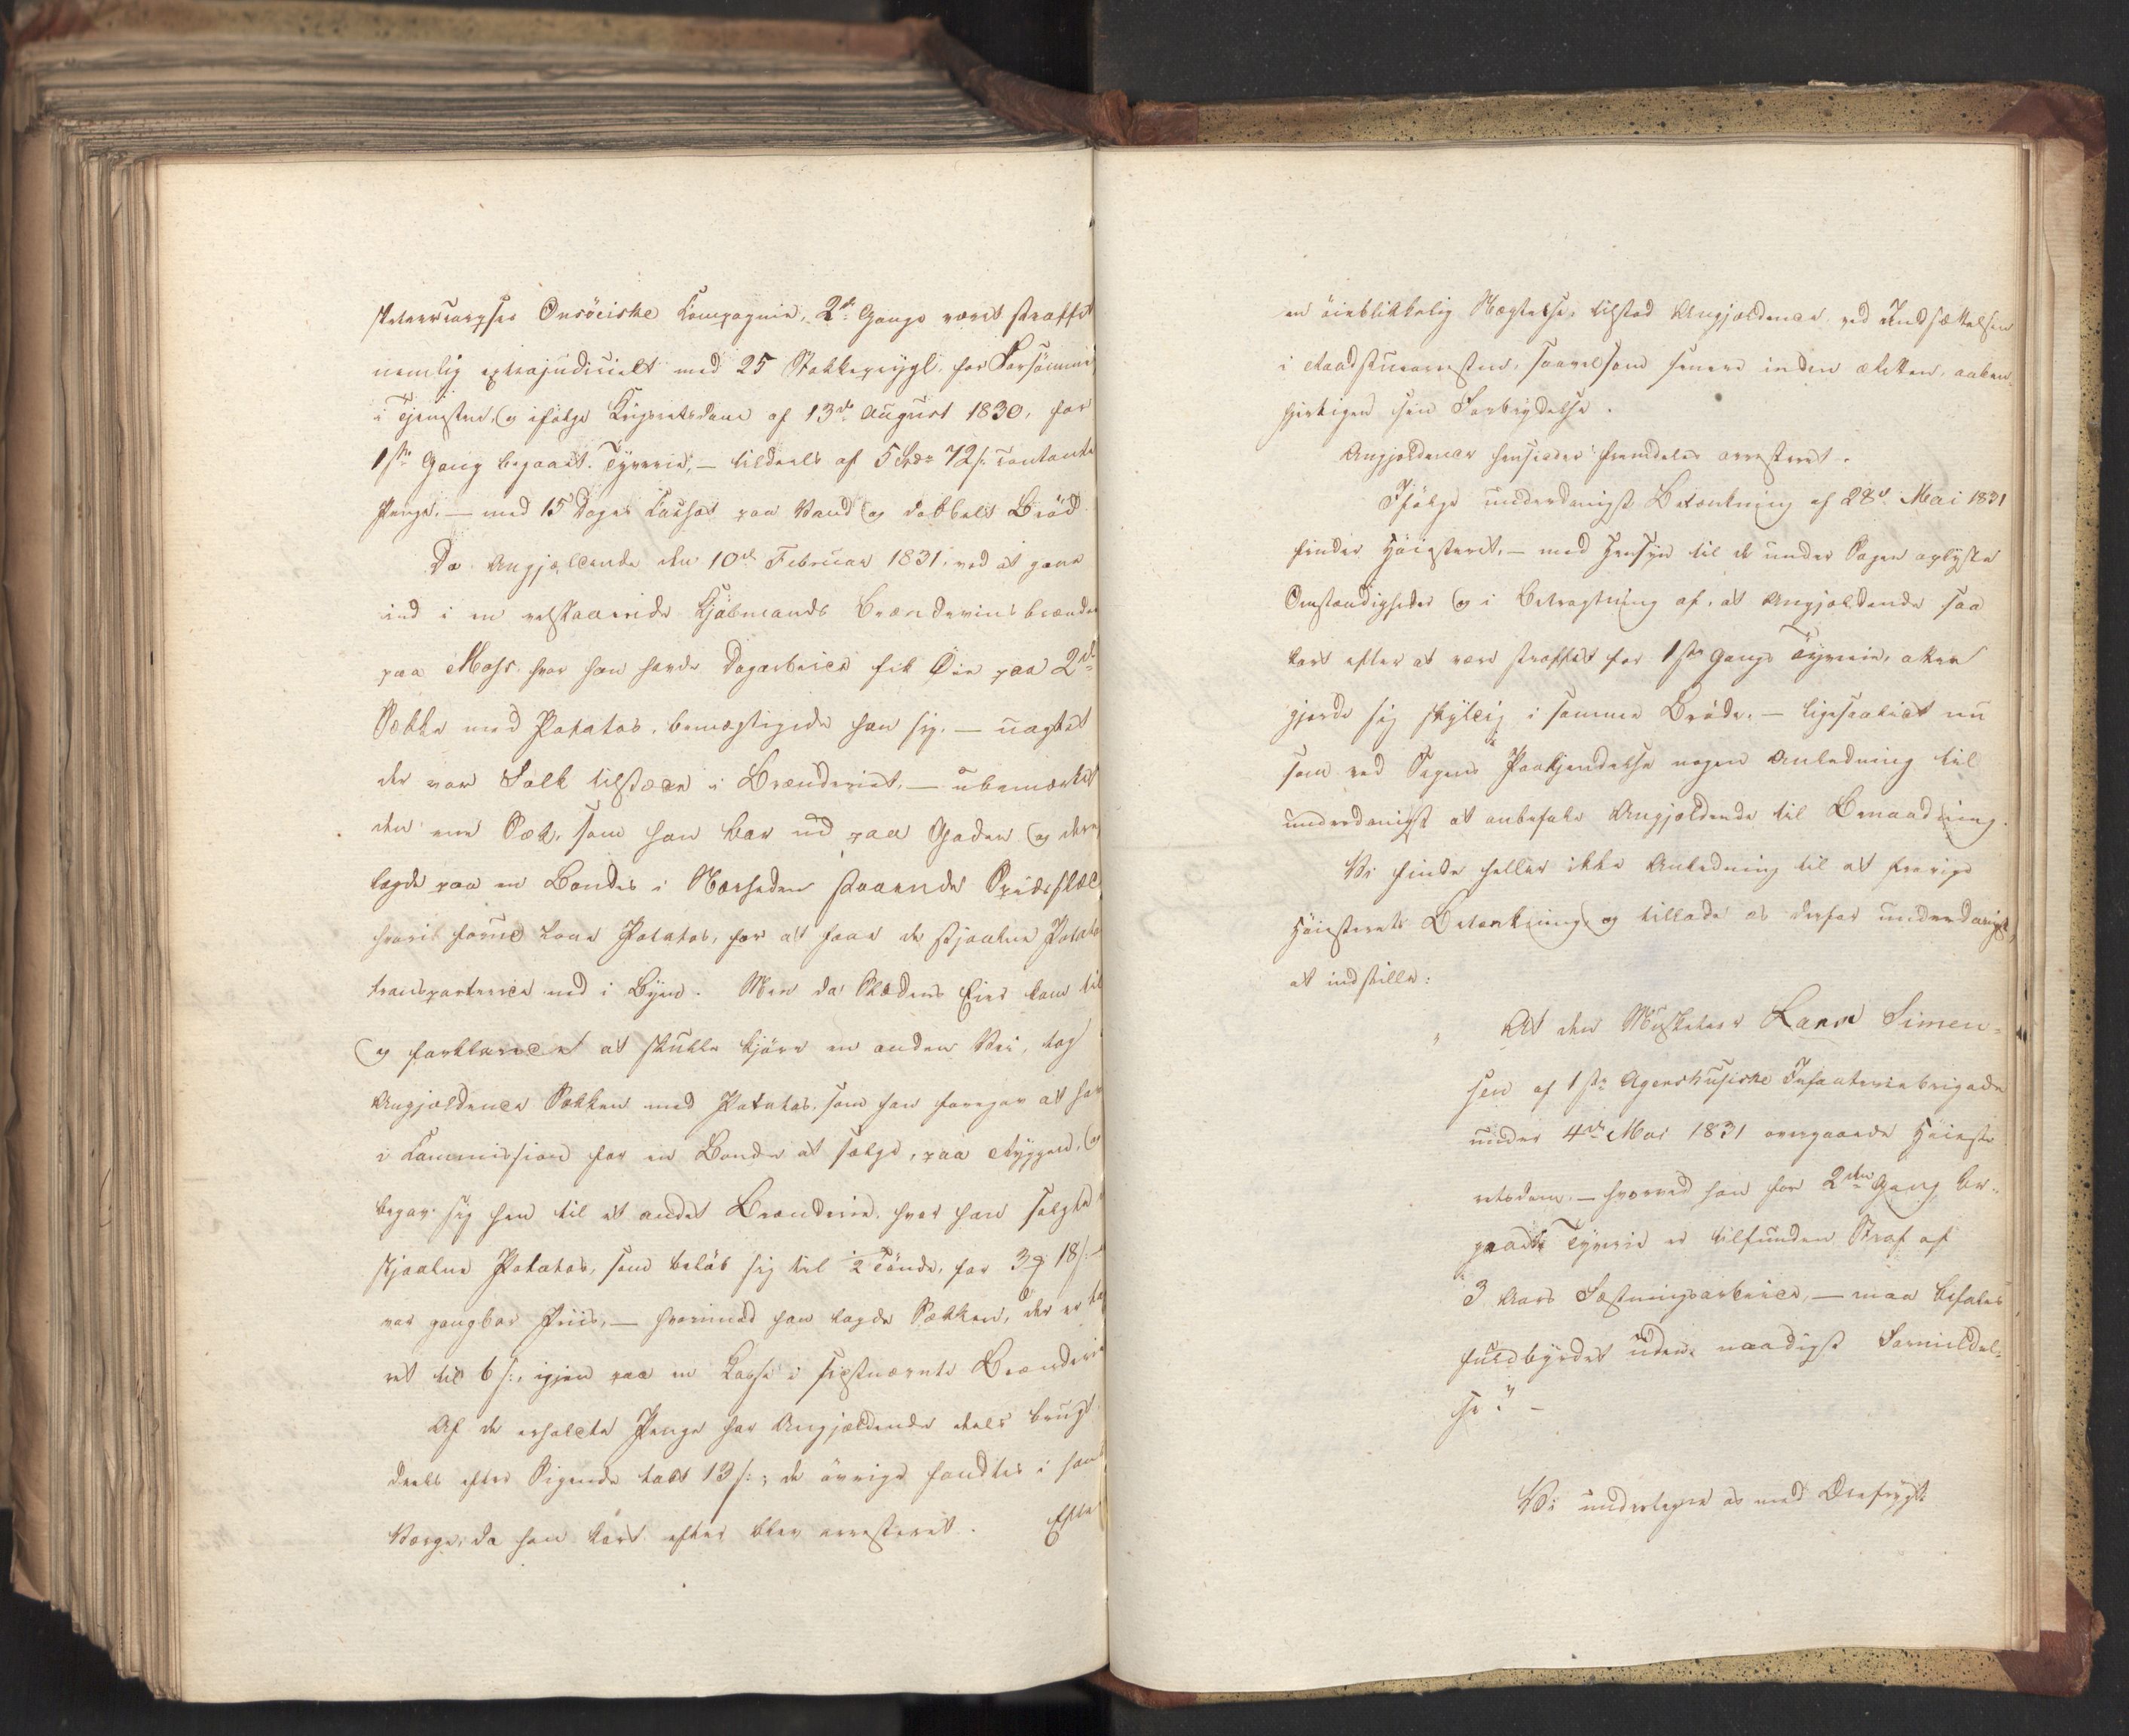 Musketeercorpses Onsöeiske Compagnie, 2de Gange været straffet
nemlig extrajudicielt med 25 Stokkeprygl for Forsömmelse
i Tjenesten, og ifölge Krigsretsdom af 13de August 1830, for
1ste Gang begaaet Tyverie, — tildeels af 5 Spdr 72 s. contante
Penge, — med 15 Dages Fængsel paa Vand og dobbelt Bröd.
Da Angjældende den 10de Februar 1831, ved at gaae
ind i en velstaaende Kjöbmands Brændeviinsbrænderie
paa Moss, hvor han havde Dagarbeide fik Öie paa 2de
Sække med Potatos, bemægtigede han sig, — uagtet
der var Folk tilstæde i Brænderiet, — ubemærket
den ene Sæk, som han bar ud paa Gaden og der
lagde paa en Bondes i Nærheden staaende Spidsslæde
hvori fandtes Potatos, for at faae de stjaalne Potatos
transporterede ned i Byen. Men da Slædens Eier kom til
og forklarede at skulle kjöre en anden Vei, tog
Angjældende Sækken med Potatos, som han foregav at have
i Commission for en Bonde at sælge, paa Ryggen, og
begav sig hen til et andet Brænderie, hvor han solgte de
stjaalne Potatos, som beløb sig til ½ Tönde, for 3 18 s.
var gangbar Priis, — hvorimod han lagde Sækken, der er taxe-
ret til 6 s., igjen paa en Kasse i sistnævnte Brænderie
Af de erholdte Penge har Angjældende deels brugt
deels efter Sigende tabt 13 s.; de övrige fandtes i hans
Værge, da han kort efter blev arresteret. Efter
en öieblikkelig Nægtelse, tilstod Angjældende, ved Indsættelsen
i Raadstuearresten, saavelsom senere inden Retten, aaben-
hjertigen sin Forbrydelse.
Angjældende hensidder fremdeles arresteret.
Ifölge underdanigst Betænkning af 28de Mai 1831
finder Höiesteret, — med Hensyn til de under Sagen oplyste
Omstændigheder og i Betragtning af, at Angjældende saa
kort efter at være straffet for 1ste Gangs Tyverie, atter
gjorde sig skyldig i samme Bröde, — ligesaalidt nu
som ved Sagens Paakjendelse nogen Anledning til
underdanigst at anbefale Angjældende til Benaadning.
Vi finde heller ikke Anledning til at fravige
Höiesterets Betænkning og tillade os derfor underdanigst,
at indstille:
„ At den Musketeer Lars Simen-
sen af 1ste Agershusiske Infanteriebrigade
under 4de Mai 1831 overgaaede Höieste-
retsdom, — hvorved han for 2den Gang be-
gaaet Tyverie er tilfunden Straf af
3 Aars Fæstningsarbeide, — maa befales
fuldbyrdet uden naadigst Formildel-
se". —
Vi undertegne os med Ærefrygt